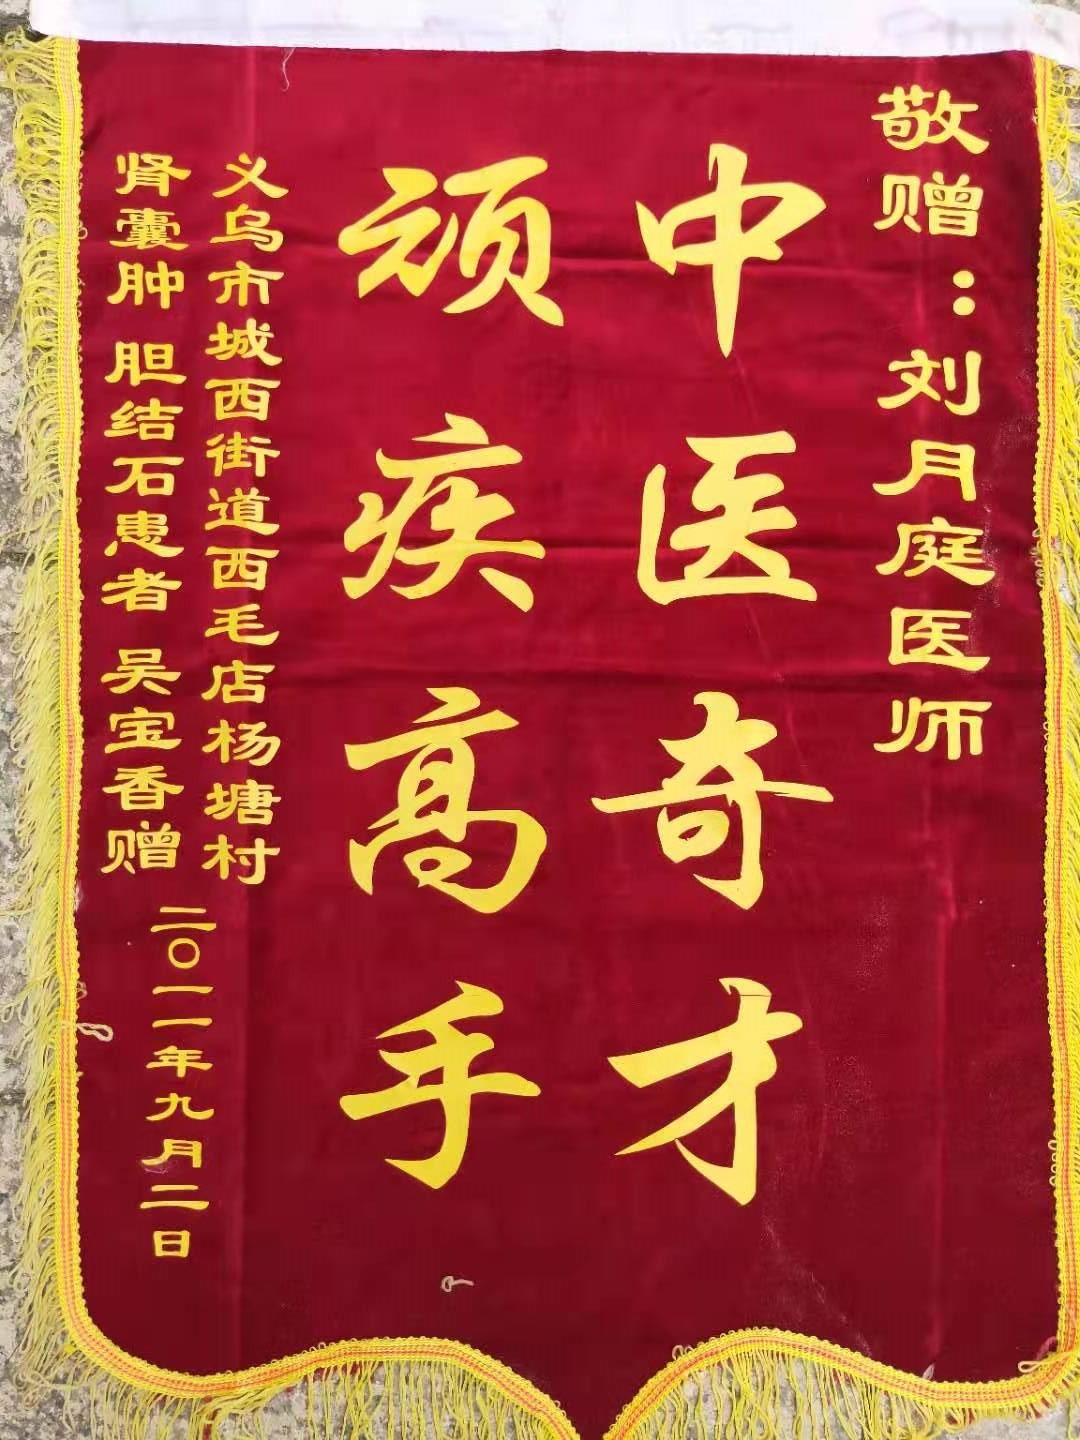 敬赠：刘月庭医师
中医奇才
顽疾高手
义乌市城西街道西毛店杨塘村
肾囊肿 胆结石患者 吴宝香赠
二〇一一年九月二日